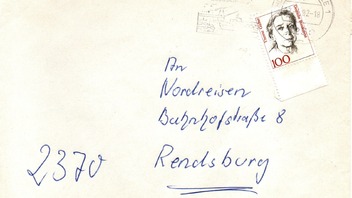 100
An
Nordreisen
Bahnhofstraße 8
2370 Rendsburg